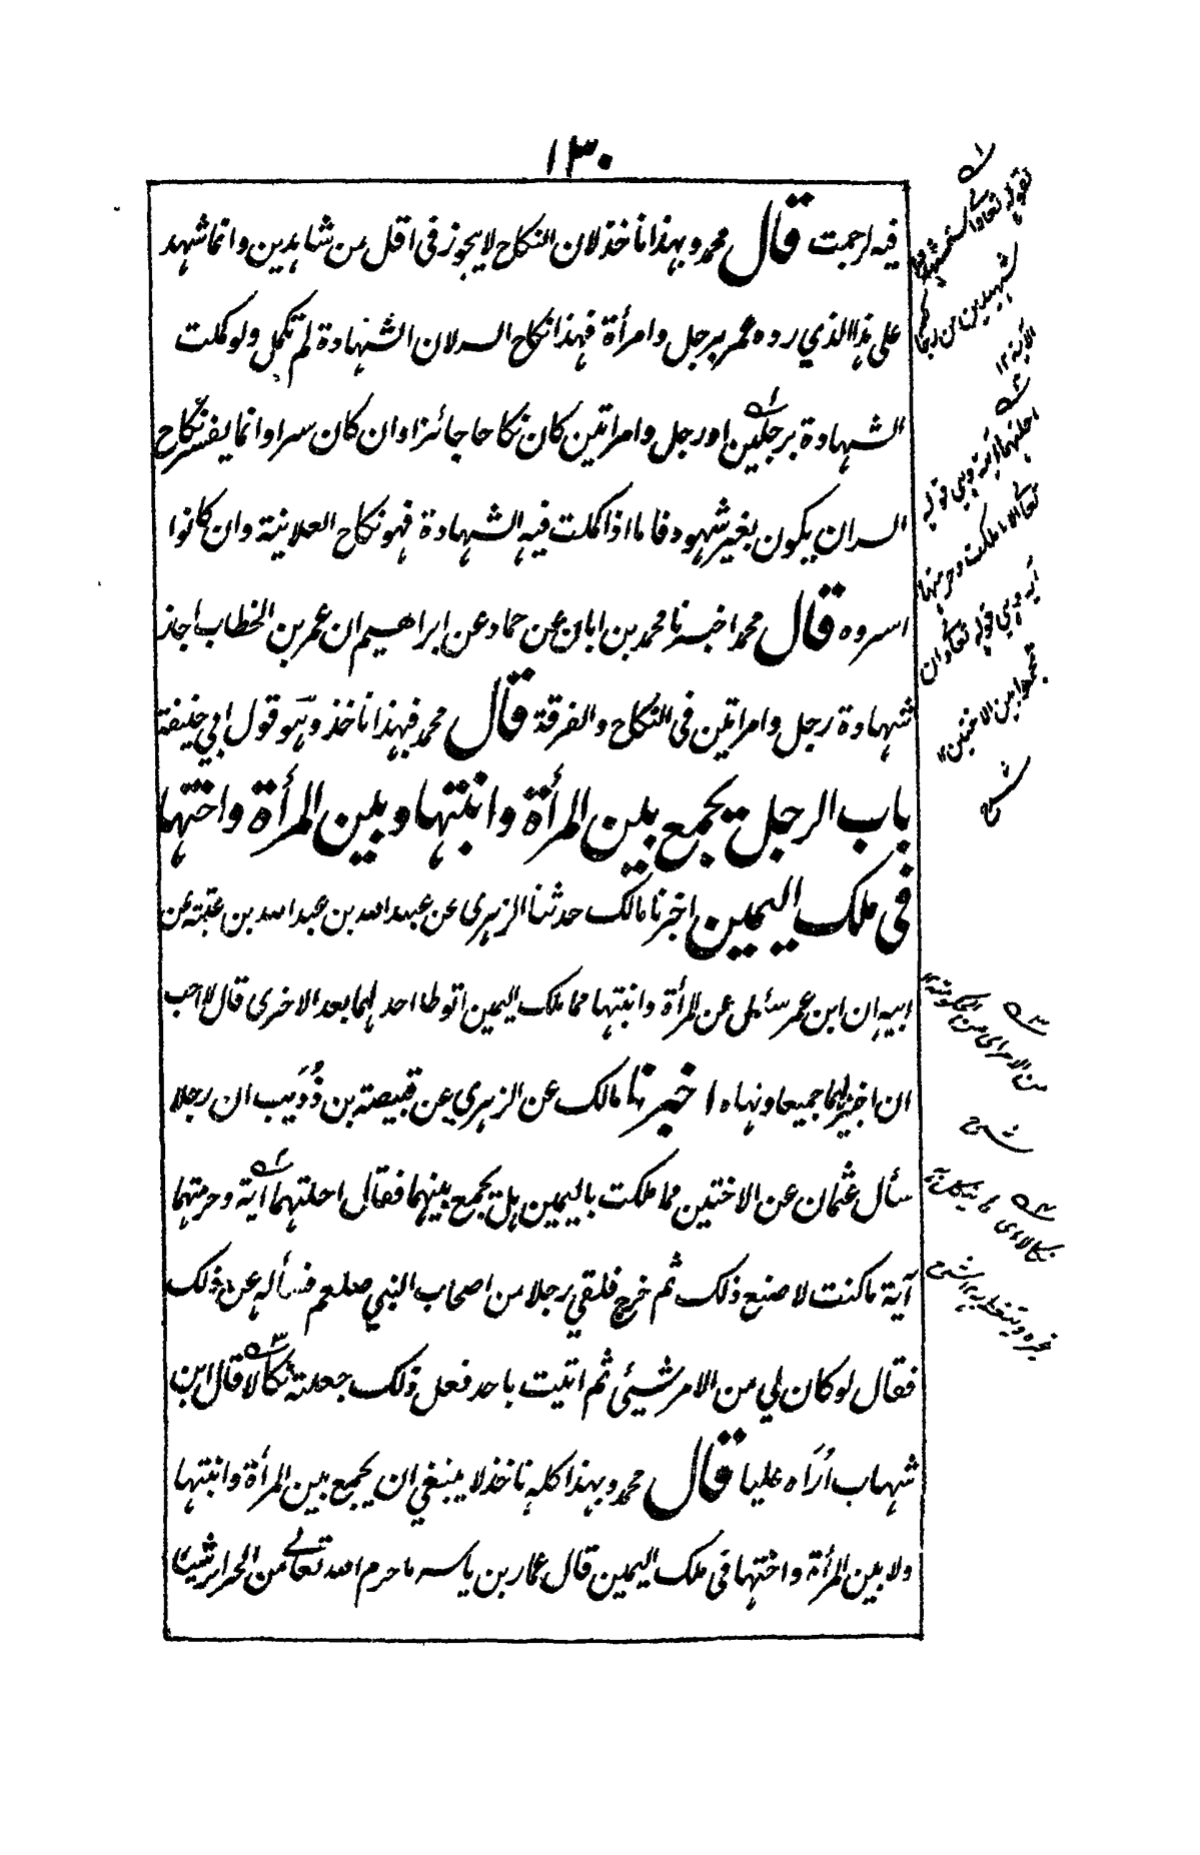 ١٣٠
فيه لرجمت قال محمد وبهذا ناخذ لان النكاح لا يجوز في اقل من شاهدين وانما شهد
على هذا الذي رده عمر برجل وامرأة فهذا نكاح السر لان الشهادة لم تكمل ولو كملت
الشهادة برجلين او رجل وامراتين كان نكاحا جائزا وان كان سرا وانما يفسد نكاح
السر ان يكون بغير شهود فاما اذا كملت فيه الشهادة فهو نكاح العلانية وان كانوا
اسروه قال محمد اخبرنا محمد بن ابان عن حماد عن ابراهيم ان عمر بن الخطاب اجاز
شهادة رجل وامراتين في النكاح والفرقة قال محمد فبهذا ناخذ وهو قول ابي حنيفة
باب الرجل يجمع بين المرأة وابنتها وبين المرأة واختها
في ملك اليمين اخبرنا مالك حدثنا الزهري عن عبيد الله بن عبد الله بن عتبة عن
ابيه ان ابن عمر سئل عن المرأة وابنتها مما ملك اليمين اتوطا احدهما بعد الاخرى قال لا احب
ان اخبرهما جميعا ونهاه اخبرنا مالك عن الزهري عن قبيصة بن ذُوَيب ان رجلا
سأل عثمان عن الاختين مما ملكت باليمين هل يجمع بينهما فقال احلتهما آية وحرمتهما
آية ما كنت لاصنع ذلك ثم خرج فلقي رجلا من اصحاب النبي صلعم فسأله عن ذلك
فقال لو كان لي من الامر شيئ ثم اتيت باحد فعل ذلك جعلته نكالا قال ابن
شهاب اُرَاه عليا قال محمد وبهذا كله ناخذ لا ينبغي ان يجمع بين المرأة وابنتها
ولا بين المرأة واختها في ملك اليمين قال عمار بن ياسر ما حرم الله تعالى من الحرائر شيئا
١
لقوله تعالى واستشهدوا
شهيدين من رجالكم
الآية ١٢
٢
احلتهما آية وهي قوله
تعالى الا ما ملكت وحرمتهما
آية وهي قوله تعالى وان
تجمعوا بين الاختين ١٢
شرح
٣
من الامر اي من الحكومة ١٢
شرح
٣
نكالا اي